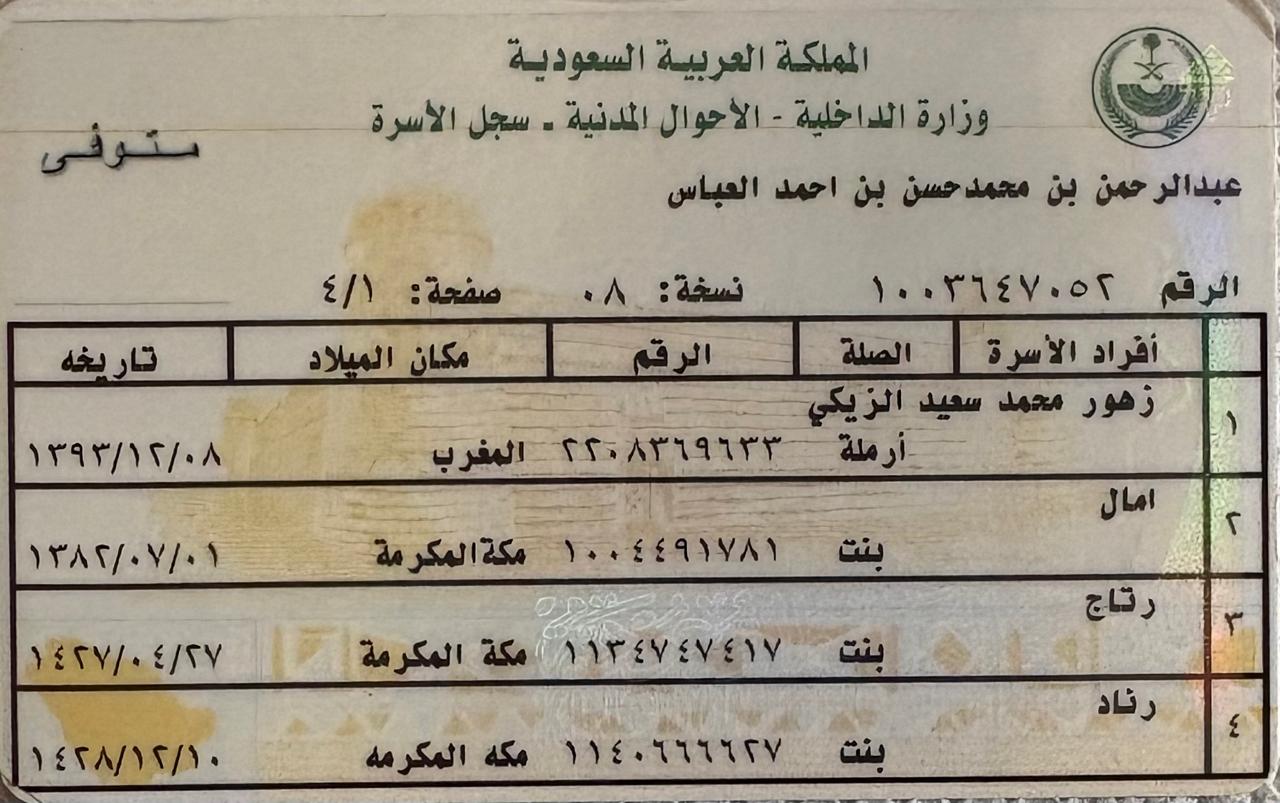 المملكة العربية السعودية
وزارة الداخلية - الأحوال المدنية - سجل الأسرة
متوفى
عبدالرحمن بن محمدحسن بن احمد العباس
الرقم ١٠٠٣٦٤٧٠٥٢ نسخة: ٠٨ صفحة: ٤/١
أفراد الأسرة الصلة الرقم مكان الميلاد تاريخه
١ زهور محمد سعيد الزيكي
أرملة ٢٢٠٨٣٦٩٦٣٣ المغرب ١٣٩٣/١٢/٠٨
٢ امال
بنت ١٠٠٤٤٩١٧٨١ مكةالمكرمة ١٣٨٢/٠٧/٠١
٣ رتاج
بنت ١١٣٤٧٤٧٤١٧ مكة المكرمة ١٤٢٧/٠٤/٢٧
٤ رناد
بنت ١١٤٠٦٦٦٦٢٧ مكه المكرمه ١٤٢٨/١٢/١٠